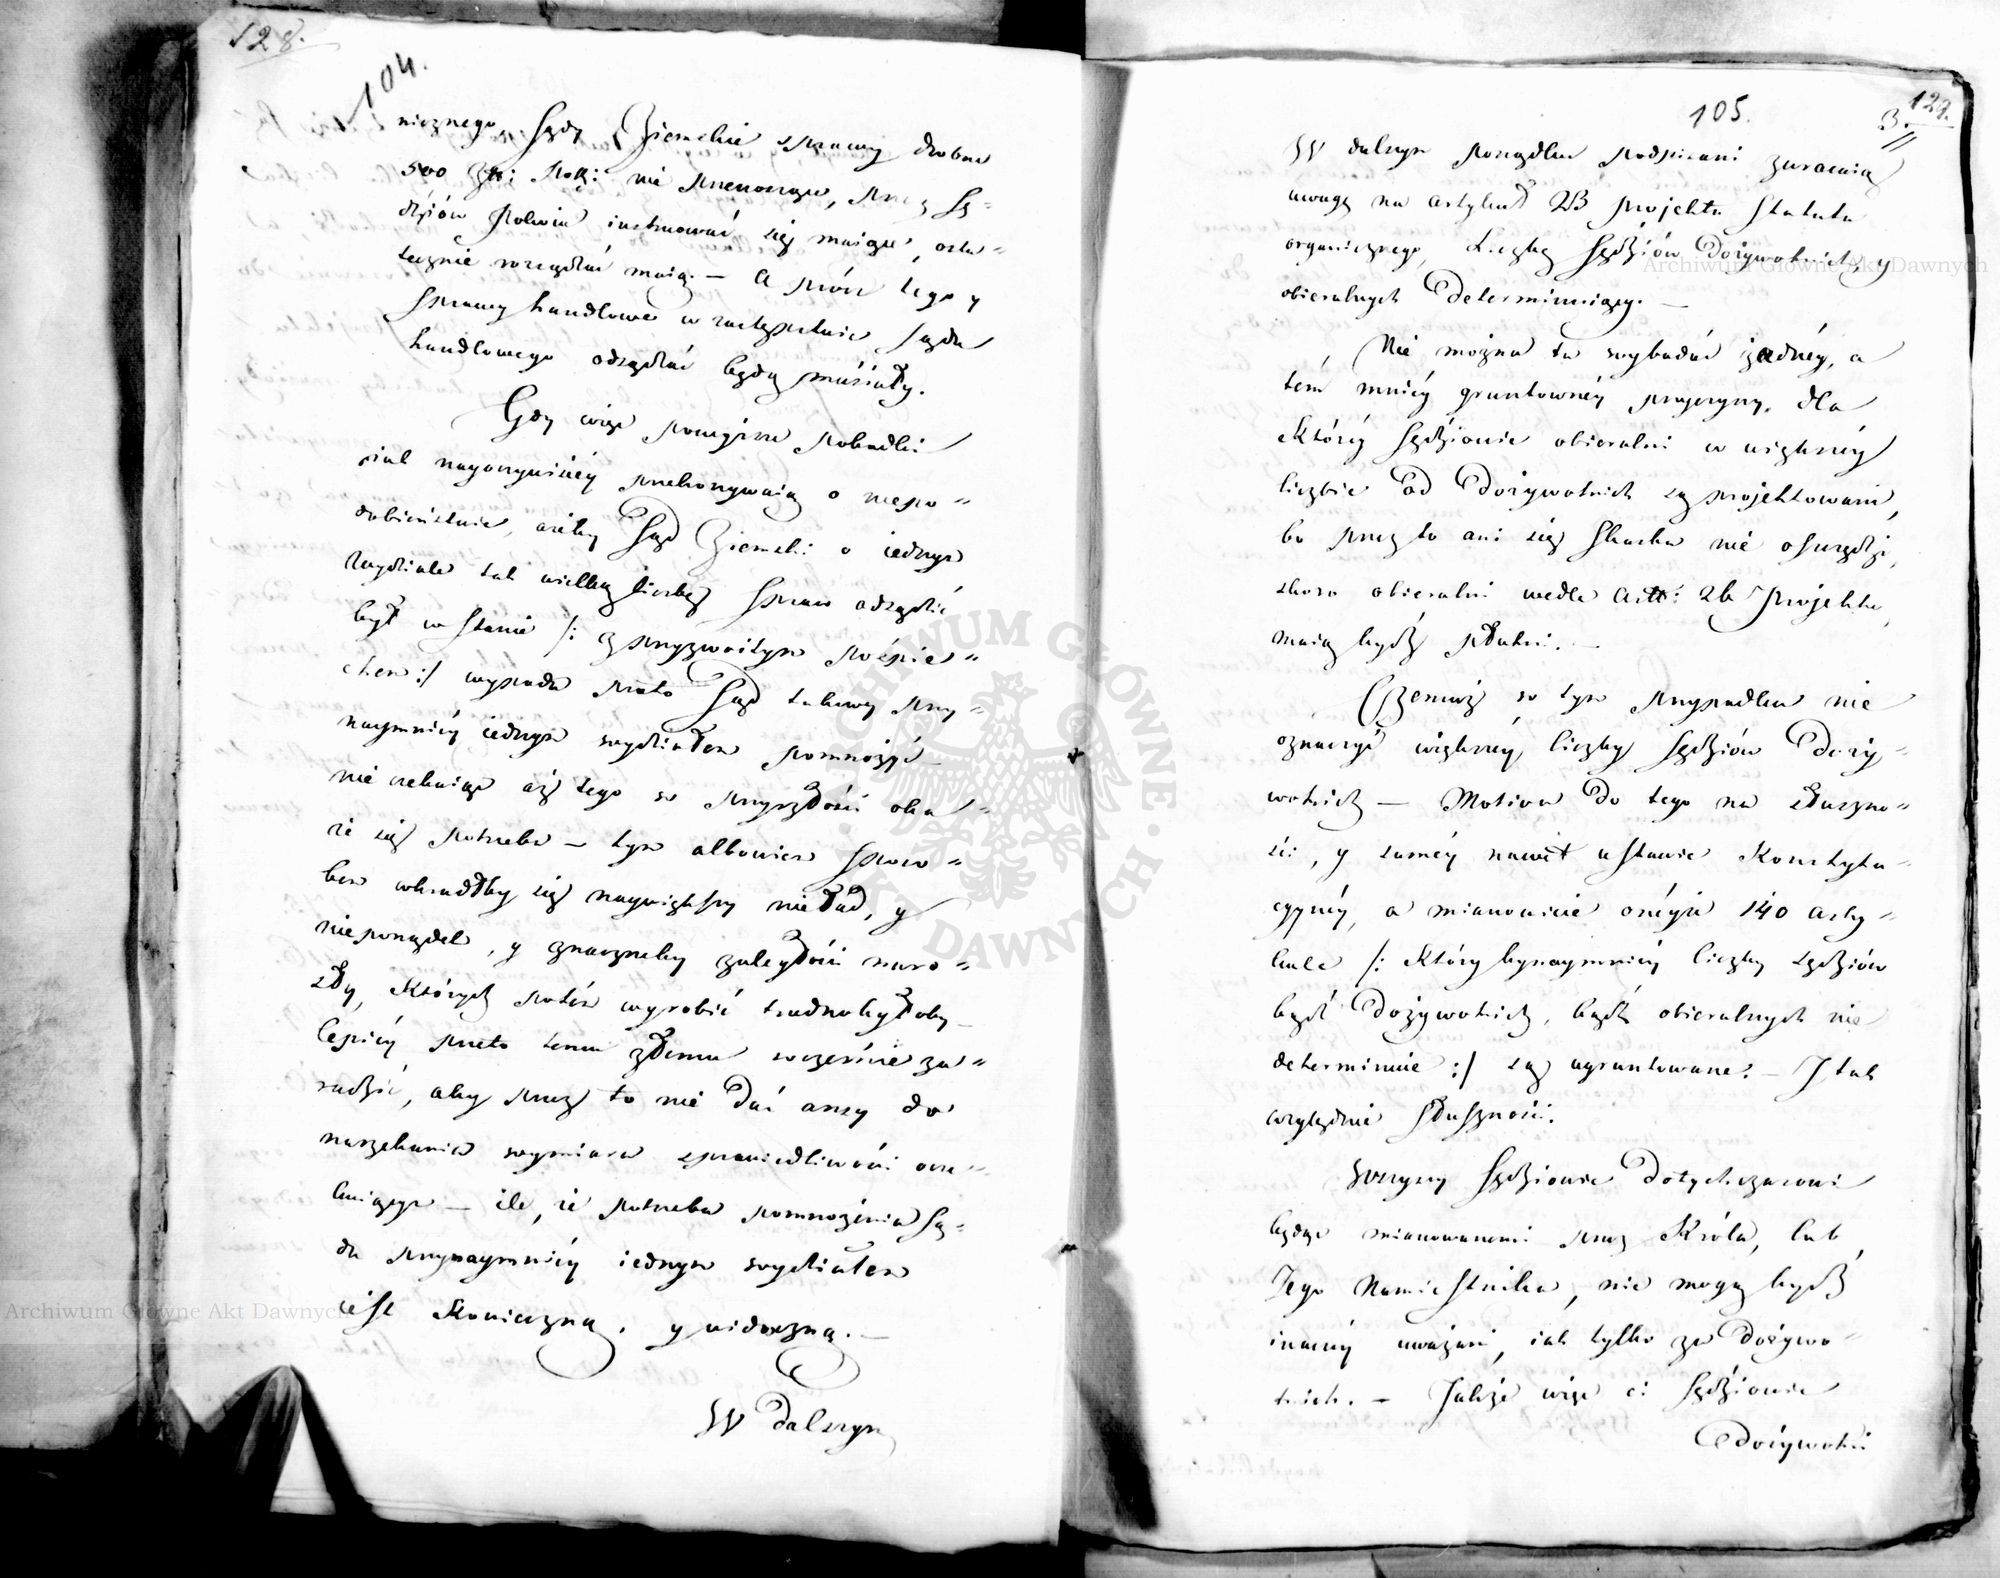 128.
104.
nicznego, Sądy Ziemskie sprawy drobne
500 Zł: Pol: nie przenoszące, przez Sę-
dziów Polwia instruować się maiące, osta-
tecznie rozsądzać maią. — A prócz tego y
sprawy handlowe w zastępstwie Sądu
handlowego odsądzać będą musiały.
Gdy więc powyższe pobudki
iak nayoczywiściéy przekonywaią o niepo-
dobieństwie, ażeby Sąd Ziemski o iednym
wydziale tak wielką liczbę spraw odsądzić
był w stanie /: z przyzwoitym pośpie-
chem :/ wypada przeto Sąd takowy przy-
naymniéy iednym wydziałem pomnożyć
nie czekaiąc aż tego w przyszłości oka-
że się potrzeba — tym albowiem sposo-
bem wkradłby się naywiększy nieład, y
nieporządek, y znaczneby zaległości naro-
sły, których potém wyrobić trudnobyłoby
lepiéy przeto temu złemu wcześnie za-
radzić, aby przez to nie dać anzy do
narzekania wymiaru sprawiedliwości ocze-
kuiącym — ile, że potrzeba pomnożenia Są-
du przynaymniéy iednym wydziałem
iest konieczną, y widoczną. —
W dalszym
105.
129.
3.
W dalszym porządku podpisani zwracaią
uwagę na artykuł 23 projektu Statutu
organicznego, Liczbę Sędziów Dożywotnich, y
obieralnych determinuiący. —
Nie można tu wybadać żadnéy, a
tém mniéy gruntownéy przyczyny, dla
któréy Sędziowie obieralni w większéy
liczbie od Dożywotnich są projektowani,
bo przez to ani się Skarbu nie oszczędzi,
skoro obieralni wedle Artt: 26 Projektu,
maią bydź płatni. —
Czemuż w tym przypadku nie
oznaczyć większéy liczby Sędziów Doży-
wotnich — Motiva do tego na słuszno-
ści, y saméy nawet ustawie Konstytu-
cyynéy, a mianowicie oneyże 140 arty-
kule /: który bynaymniéy liczby sędziów
bądź Dożywotnich, bądź obieralnych nie
determinuie :/ są ugruntowane. — I tak
względnie słuszności.
Wszyscy Sędziowie Dotychczasowi
będąc mianowanemi przez Króla, lub
Jego Namiestnika, nie mogą bydź
inaczéy uważani, iak tylko za Dożywo-
tnich. — Jakże więc ci Sędziowie
Dożywotni